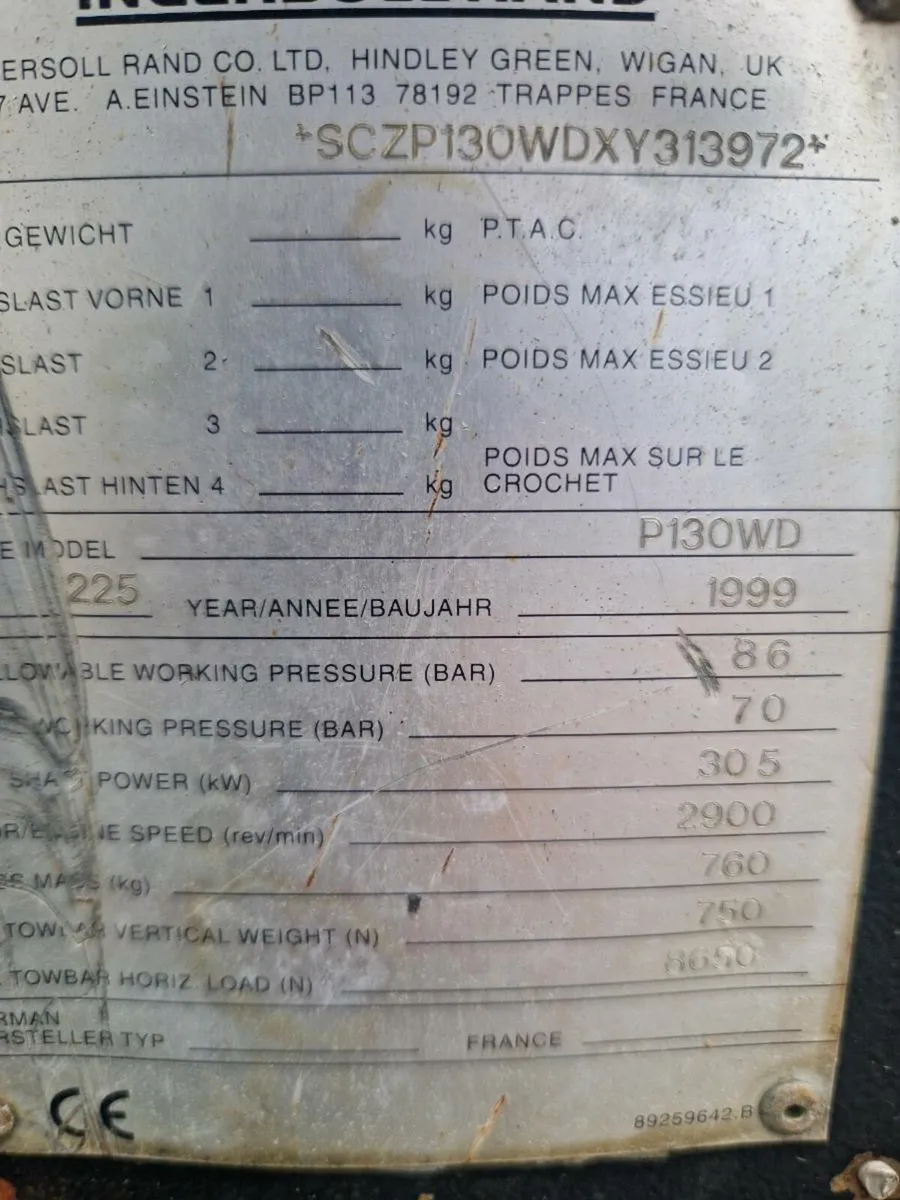 INGERSOLL RAND
ERSOLL RAND CO. LTD, HINDLEY GREEN, WIGAN, UK
7 AVE. A.EINSTEIN BP113 78192 TRAPPES FRANCE
*SCZP130WDXY313972*
GEWICHT kg P.T.A.C.
SLAST VORNE 1 kg POIDS MAX ESSIEU 1
SLAST 2 kg POIDS MAX ESSIEU 2
SLAST 3 kg
POIDS MAX SUR LE
HSLAST HINTEN 4 kg CROCHET
E MODEL P130WD
225 YEAR/ANNEE/BAUJAHR 1999
LLOWABLE WORKING PRESSURE (BAR) 86
WORKING PRESSURE (BAR) 70
SHAFT POWER (kW) 305
OR/ENGINE SPEED (rev/min) 2900
SS MASS (kg) 760
TOWBAR VERTICAL WEIGHT (N) 750
TOWBAR HORIZ. LOAD (N) 8650
RMAN
RSTELLER TYP FRANCE
CE
89259642.B